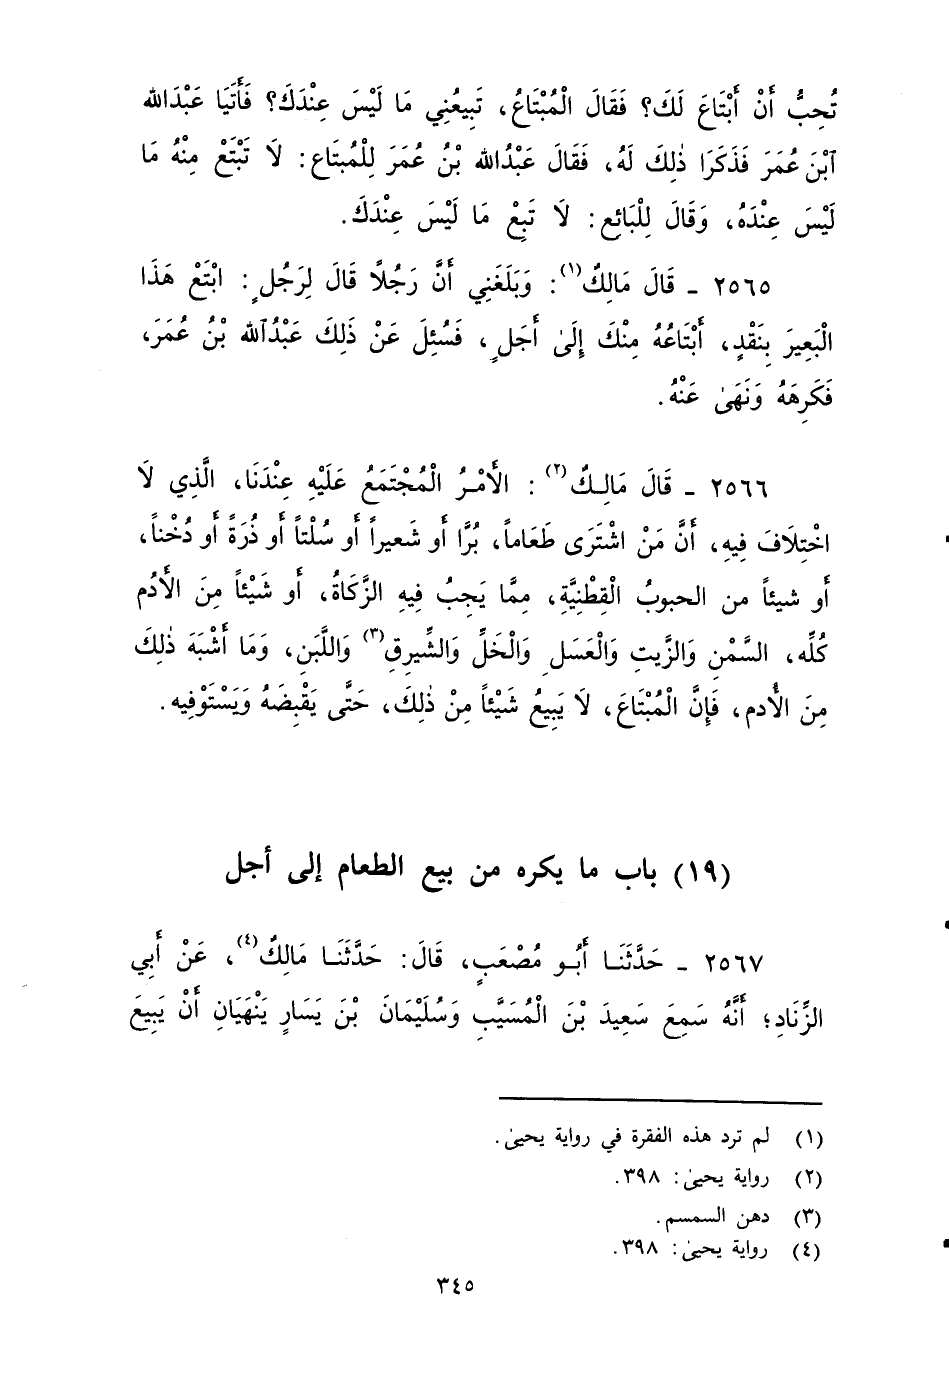 تُحِبُّ أَنْ أَبْتَاعَ لَكَ؟ فَقَالَ الْمُبْتَاعُ، تَبِيعُنِي مَا لَيْسَ عِنْدَكَ؟ فَأَتَيَا عَبْدَالله
آبْنَ عُمَرَ فَذَكَرَا ذٰلِكَ لَهُ، فَقَالَ عَبْدُالله بْنُ عُمَرَ لِلْمُبتَاعِ: لَا تَبْتَعْ مِنْهُ مَا
لَيْسَ عِنْدَهُ، وَقَالَ لِلْبَائِعِ: لَا تَبِعْ مَا لَيْسَ عِنْدَكَ.
٢٥٦٥ - قَالَ مَالِكٌ(١): وَبَلَغَنِي أَنَّ رَجُلًا قَالَ لِرَجُلٍ: ابْتَعْ هَذَا
الْبَعِيرَ بِنَقْدٍ، أَبْتَاعُهُ مِنْكَ إِلَىٰ أَجَلٍ، فَسُئِلَ عَنْ ذَلِكَ عَبْدُاَلله بْنُ عُمَرَ،
فَكَرِهَهُ وَنَهَىٰ عَنْهُ.
٢٥٦٦ - قَالَ مَالِكٌ(٢): الأَمْرُ الْمُجْتَمَعُ عَلَيْهِ عِنْدَنَا، الَّذِي لَا
اخْتِلَافَ فِيهِ، أَنَّ مَنْ اشْتَرَى طَعَاماً، بُرًّا أَو شَعيراً أَو سُلْتاً أَو ذُرَةً أَو دُخْناً،
أَو شيئاً من الحبوبُ الْقِطْنِيَّةِ، مِمَّا يَجِبُ فِيهِ الزَّكَاةُ، أَو شَيْئاً مِنَ الأَدُم
كُلِّه، السَّمْنِ وَالزَّيتِ وَالْعَسَلِ وَالْخَلِّ وَالشِّيرِقِ(٣) وَاللَّبَنِ، وَمَا أَشْبَهَ ذٰلِكَ
مِنَ الأُدم، فَإِنَّ الْمُبْتَاعَ، لَا يَبِيعُ شَيْئاً مِنْ ذٰلِكَ، حَتَّى يَقْبِضَهُ وَيَسْتَوْفِيه.
(١٩) باب ما يكره من بيع الطعام إلى أجل
٢٥٦٧ - حَدَّثَنَا أَبُو مُصْعَبٍ، قَالَ: حَدَّثَنَا مَالِكٌ(٤)، عَنْ أَبِي
الزِّنَادِ؛ أَنَّهُ سَمِعَ سَعِيدَ بْنَ الْمُسَيَّبِ وَسُلَيْمَانَ بْنَ يَسَارٍ يَنْهَيَانِ أَنْ يَبِيعَ
(١) لم ترد هذه الفقرة في رواية يحيىٰ.
(٢) رواية يحيىٰ: ٣٩٨.
(٣) دهن السمسم.
(٤) رواية يحيىٰ: ٣٩٨.
٣٤٥